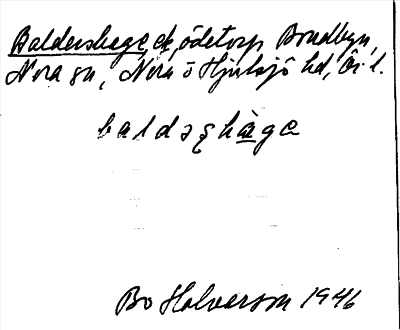 Baldershage, ödetorp Brudbyn,
Nora sn, Nora o Hjulsjö hd, Ör. l.
baldəʂhàge
Bo Halverson 1946